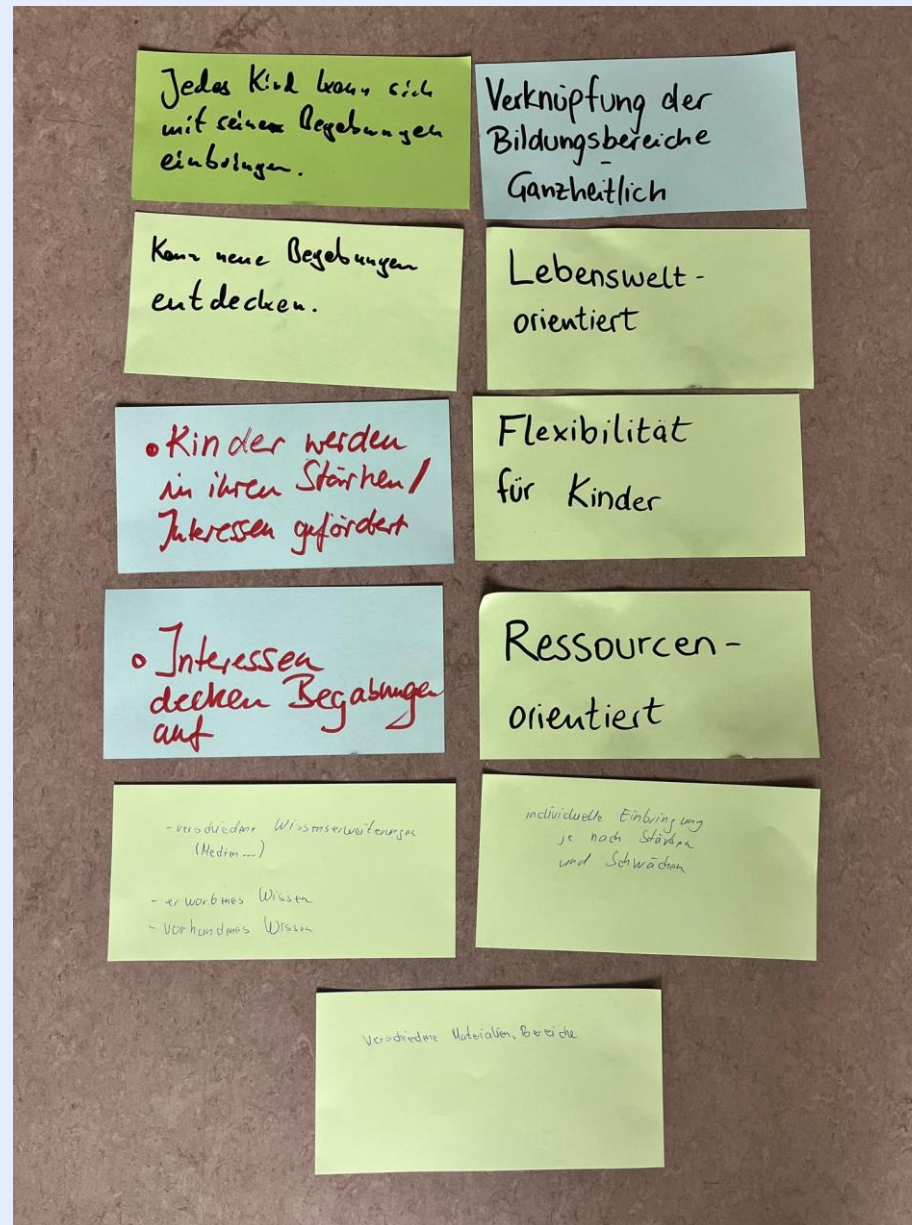 Jedes Kind kann sich
mit seinen Begabungen
einbringen.
Kann neue Begabungen
entdecken.
• Kinder werden
in ihren Stärken/
Interessen gefördert
• Interessen
decken Begabungen
auf
- verschiedene Wissenserweiterungen
(Medien...)
- erworbenes Wissen
- vorhandenes Wissen
Verknüpfung der
Bildungsbereiche
-
Ganzheitlich
Lebenswelt-
orientiert
Flexibilität
für Kinder
Ressourcen-
orientiert
individuelle Einbringung
je nach Stärken
und Schwächen
verschiedene Materialien, Bereiche